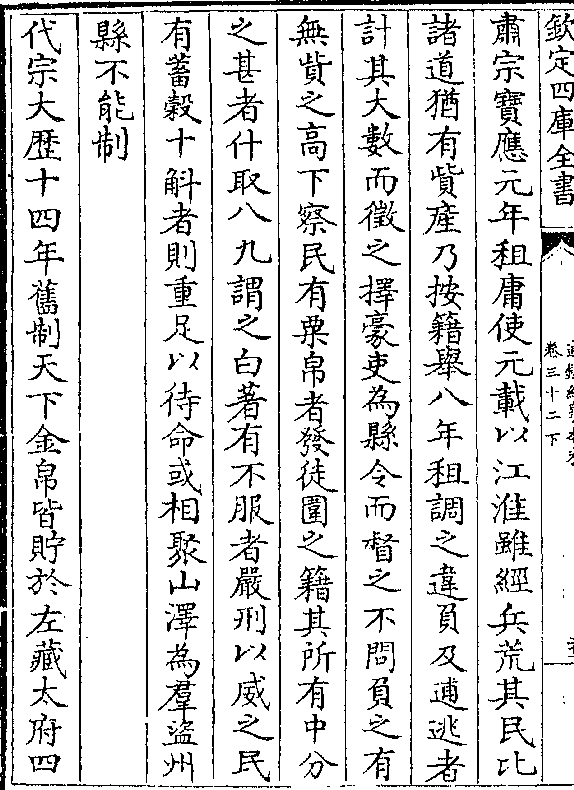 欽定四庫全書
卷三十二下
肅宗寶應元年租庸使元載以江淮雖經兵荒其民比
諸道猶有貲產乃按籍舉八年租調之違負及逋逃者
計其大數而徵之擇豪吏為縣令而督之不問負之有
無貲之高下察民有粟帛者發徒圍之籍其所有中分
之甚者什取八九謂之白著有不服者嚴刑以威之民
有蓄穀十斛者則重足以待命或相聚山澤為羣盜州
縣不能制
代宗大歴十四年舊制天下金帛皆貯於左藏太府四